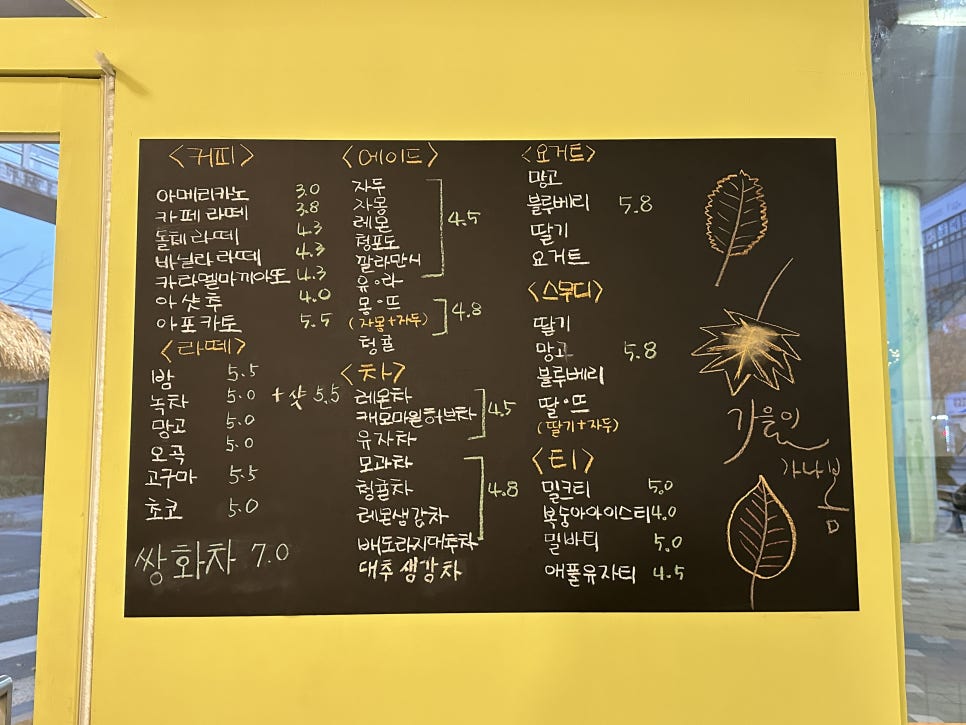 <커피>
아메리카노 3.0
카페라떼 3.8
돌체라떼 4.3
바닐라라떼 4.3
카라멜마끼아또 4.3
아샷추 4.0
아포카토 5.5
<라떼>
밤 5.5
녹차 5.0 +샷 5.5
망고 5.0
오곡 5.0
고구마 5.5
초코 5.0
쌍화차 7.0
<에이드>
자두
자몽
레몬 4.5
청포도
깔라만시
유•라
몽•뜨 4.8
(자몽+자두)
청귤
<차>
레몬차
캐모마일허브차 4.5
유자차
모과차
청귤차 4.8
레몬생강차
배도라지대추차
대추생강차
<요거트>
망고
블루베리 5.8
딸기
요거트
<스무디>
딸기
망고 5.8
블루베리
딸•뜨
(딸기+자두)
<티>
밀크티 5.0
복숭아아이스티 4.0
밀바티 5.0
애플유자티 4.5
가을이
가나봄